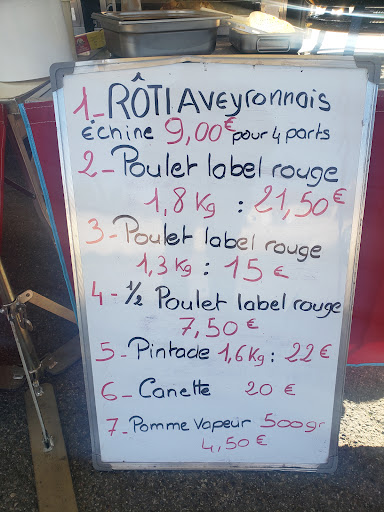 1- RÔTI Aveyronnais
échine 9,00€ pour 4 parts
2- Poulet label rouge
1,8 Kg : 21,50 €
3- Poulet label rouge
1,3 Kg : 15 €
4- 1/2 Poulet label rouge
7,50 €
5- Pintade 1,6 Kg : 22 €
6- Canette 20 €
7- Pomme vapeur 500gr
4,50 €